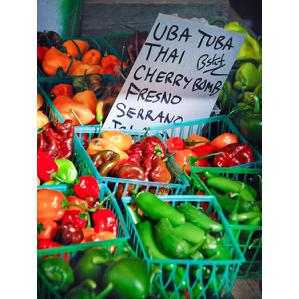 UBA TUBA
THAI
Bskt
CHERRY BOMB
FRESNO
SERRANO